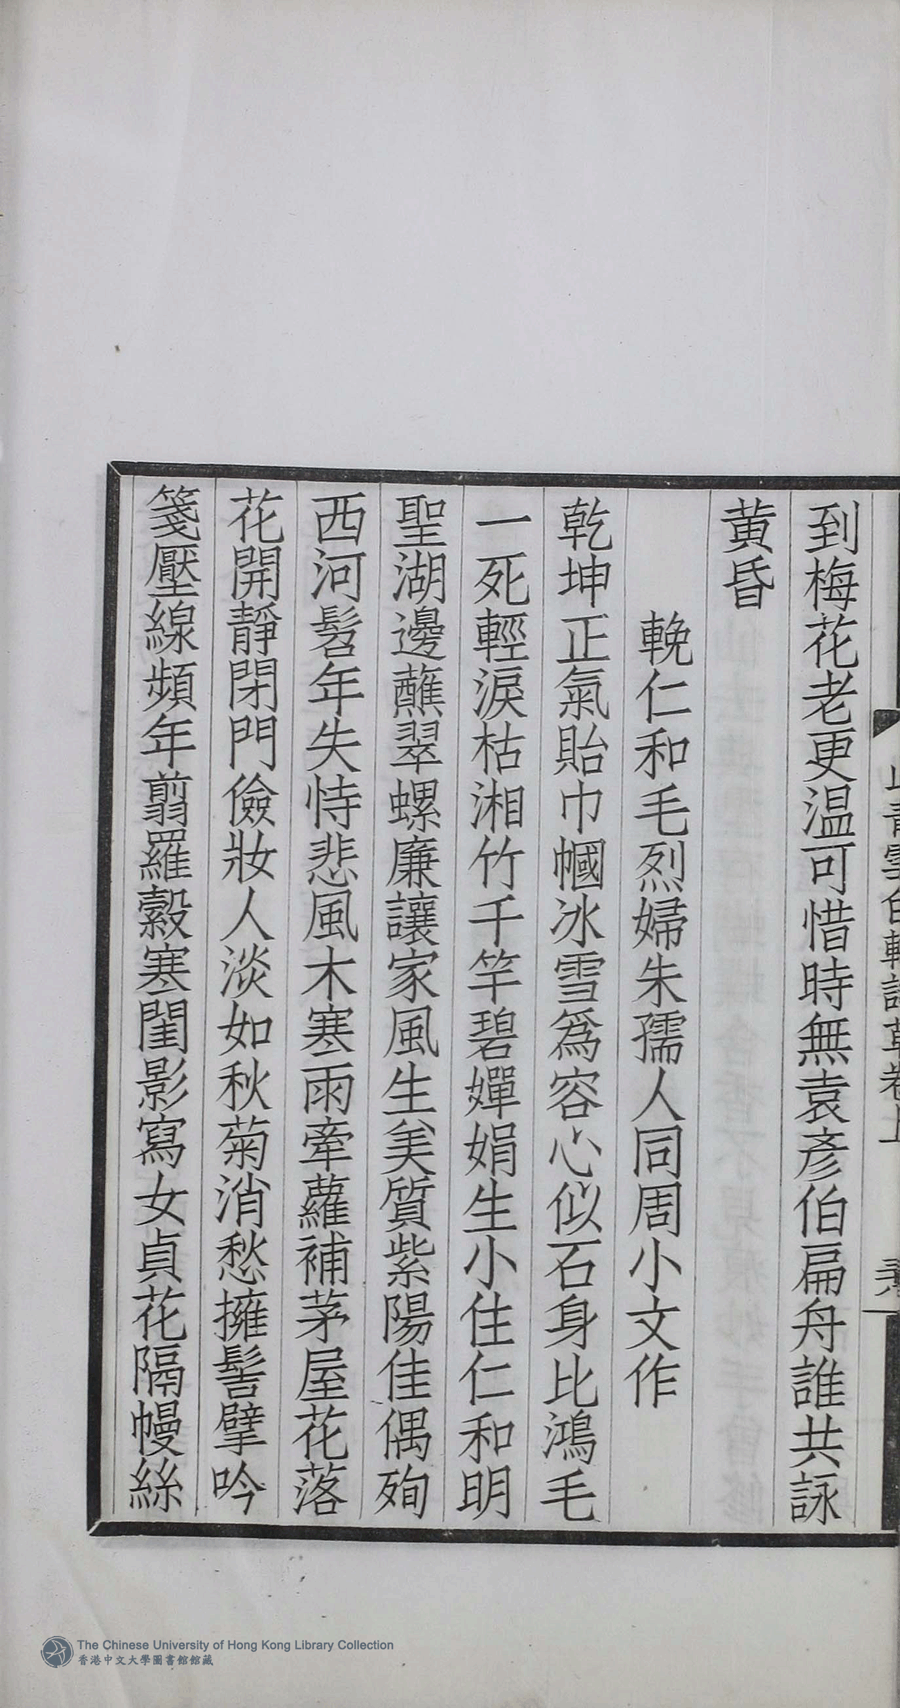 到梅花老更溫可惜時無袁彥伯扁舟誰共詠
黃昏
輓仁和毛烈婦朱孺人同周小文作
乾坤正氣貽巾幗冰雪爲容心似石身比鴻毛
一死輕淚枯湘竹千竿碧嬋娟生小住仁和明
聖湖邊蘸翠螺廉讓家風生美質紫陽佳偶殉
西河髫年失恃悲風木寒雨牽蘿補茅屋花落
花開靜閉門儉妝人淡如秋菊消愁擁髻擘吟
箋壓線頻年翦羅縠寒閨影寫女貞花隔幔絲
The Chinese University of Hong Kong Library Collection
香港中文大學圖書館館藏